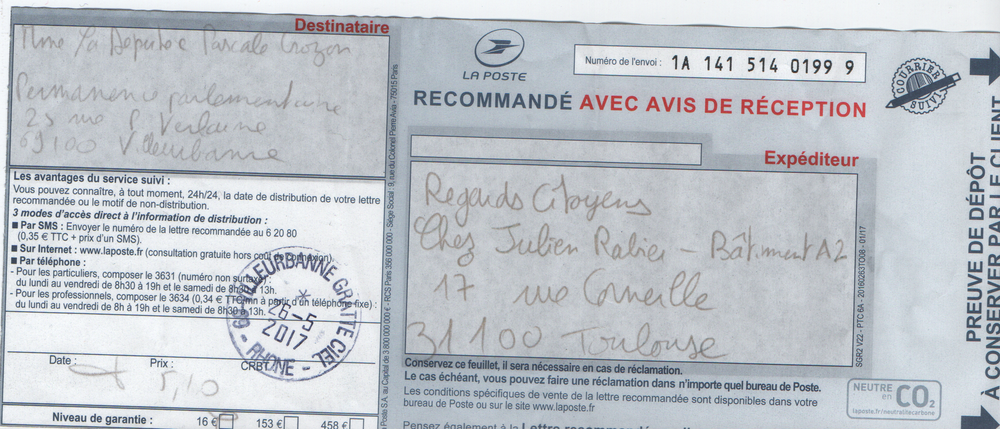 Destinataire
Mme La Députée Pascale Crozon
Permanence parlementaire
25 rue P. Verlaine
69100 Villeurbanne
Les avantages du service suivi :
Vous pouvez connaître, à tout moment, 24h/24, la date de distribution de votre lettre
recommandée ou le motif de non-distribution.
3 modes d'accès direct à l'information de distribution :
■ Par SMS : Envoyer le numéro de la lettre recommandée au 6 20 80
(0,35 € TTC + prix d'un SMS).
■ Sur Internet : www.laposte.fr (consultation gratuite hors coût de connexion).
■ Par téléphone :
- Pour les particuliers, composer le 3631 (numéro non surtaxé) :
du lundi au vendredi de 8h30 à 19h et le samedi de 8h30 à 13h.
- Pour les professionnels, composer le 3634 (0,34 € TTC/mn à partir d'un téléphone fixe) :
du lundi au vendredi de 8h à 19h et le samedi de 8h30 à 13h.
69 VILLEURBANNE GRATTE CIEL
26-5
2017
- RHONE -
Date :
Prix :
CRBT :
5,10
Niveau de garantie :
16 €
153 €
458 €
Poste S.A. au Capital de 3 800 000 000 € - RCS Paris 356 000 000 - Siège Social : 9, rue du Colonel Pierre Avia - 75015 Paris
LA POSTE
Numéro de l'envoi :
1A 141 514 0199 9
COURRIER
SUIVI
RECOMMANDÉ AVEC AVIS DE RÉCEPTION
Expéditeur
Regards Citoyens
Chez Julien Rabier - Bâtiment A2
17 rue Corneille
31100 Toulouse
SGR2 V22 - PTC 6A - 20160263TO08 - 01/17
Conservez ce feuillet, il sera nécessaire en cas de réclamation.
Le cas échéant, vous pouvez faire une réclamation dans n'importe quel bureau de Poste.
Les conditions spécifiques de vente de la lettre recommandée sont disponibles dans votre
bureau de Poste ou sur le site www.laposte.fr
Pensez également à la Lettre recommandée
NEUTRE
en CO2
laposte.fr/neutralitecarbone
PREUVE DE DÉPÔT
À CONSERVER PAR LE CLIENT